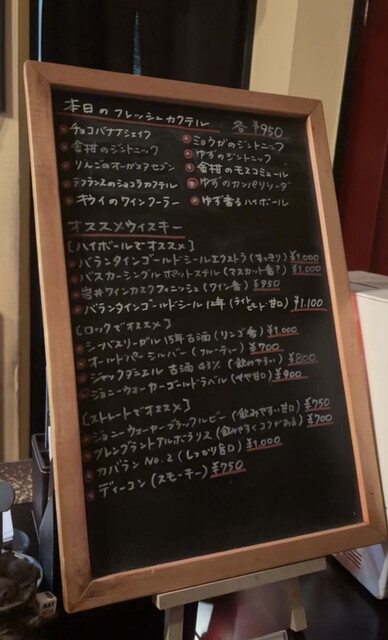 本日のフレッシュカクテル 各 ¥950
チョコバナナシェイク
金柑のジントニック
りんごのオーガスアセブン
ラフランスのショコラカクテル
キウイのワインクーラー
ミョウガのジントニック
ゆずのジントニック
金柑のモスコミュール
ゆずのカンパリソーダ
ゆず香るハイボール
オススメウイスキー
[ハイボールでオススメ]
バランタインゴールドシールエクストラ(すっきり) ¥1,000
バスカーシングルポットスチル(マスカット香?) ¥1,000
岩井ワインカスクフィニッシュ(ワイン香) ¥950
バランタインゴールドシール12年(ライトピート甘口) ¥1,100
[ロックでオススメ]
シーバスリーガル15年古酒(リンゴ香) ¥1,000
オールドパーシルバー(フルーティー) ¥700
ジャックダニエル古酒43%(飲みやすい) ¥800
ジョニーウォーカーゴールドラベル(やや甘口) ¥900
[ストレートでオススメ]
ジョニーウォーカーブラックルビー(飲みやすい甘口) ¥750
グレンブラントアルボラリス(飲みやすくコクがある) ¥700
カバランNo.2(しっかり甘口) ¥1,000
ディーコン(スモーキー) ¥750